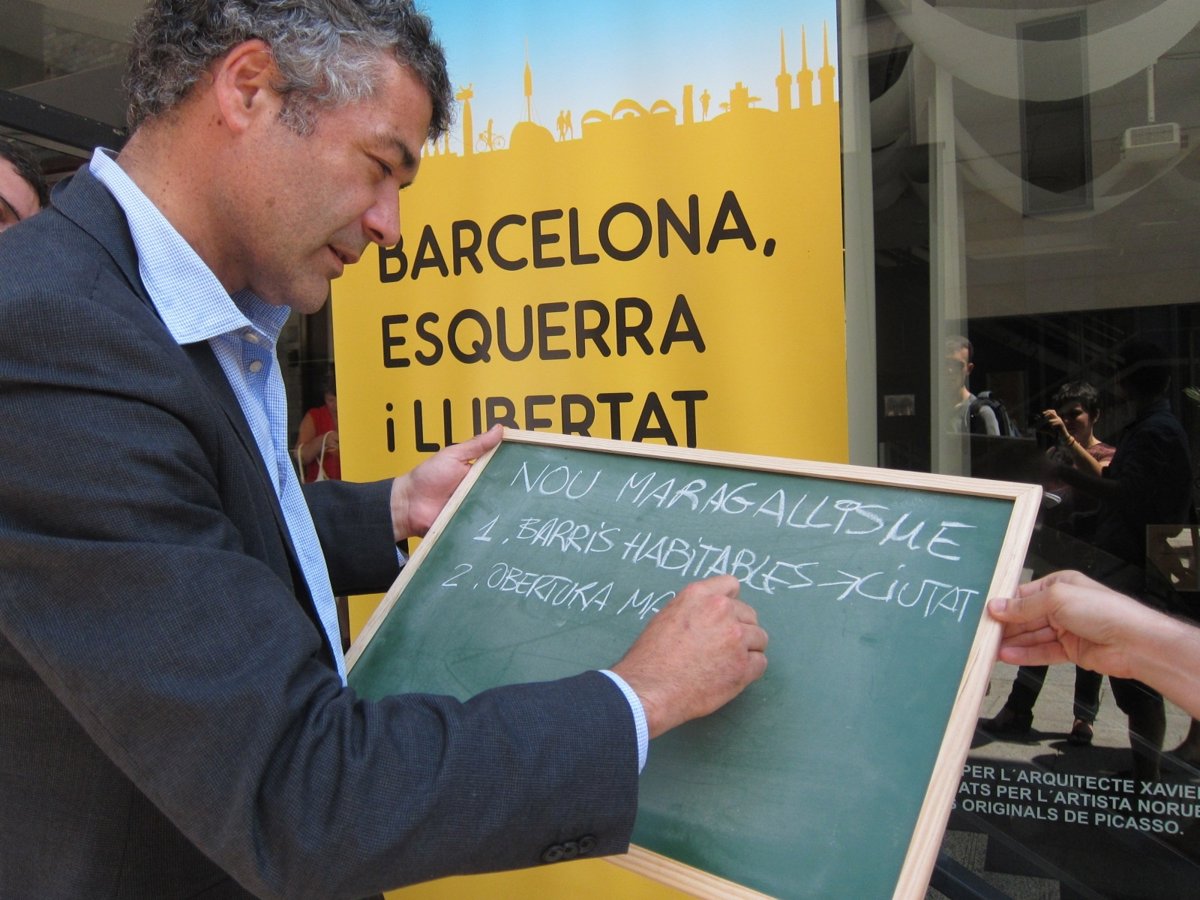 BARCELONA,
ESQUERRA
i LLIBERTAT
NOU MARAGALLISME
1. BARRIS HABITABLES → CIUTAT
2. OBERTURA MA
PER L´ARQUITECTE XAVIER
ATS PER L´ARTISTA NORUE
S ORIGINALS DE PICASSO.